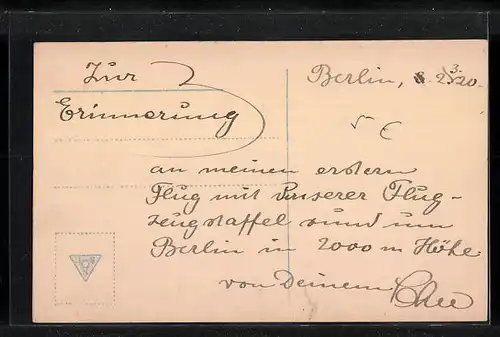 Zur
Berlin, 8. 3. 20.
Erinnerung
5 €
an meinen ersten
Flug mit unserer Flug-
zeugstaffel rund um
Berlin in 2000 m Höhe
von Deinem